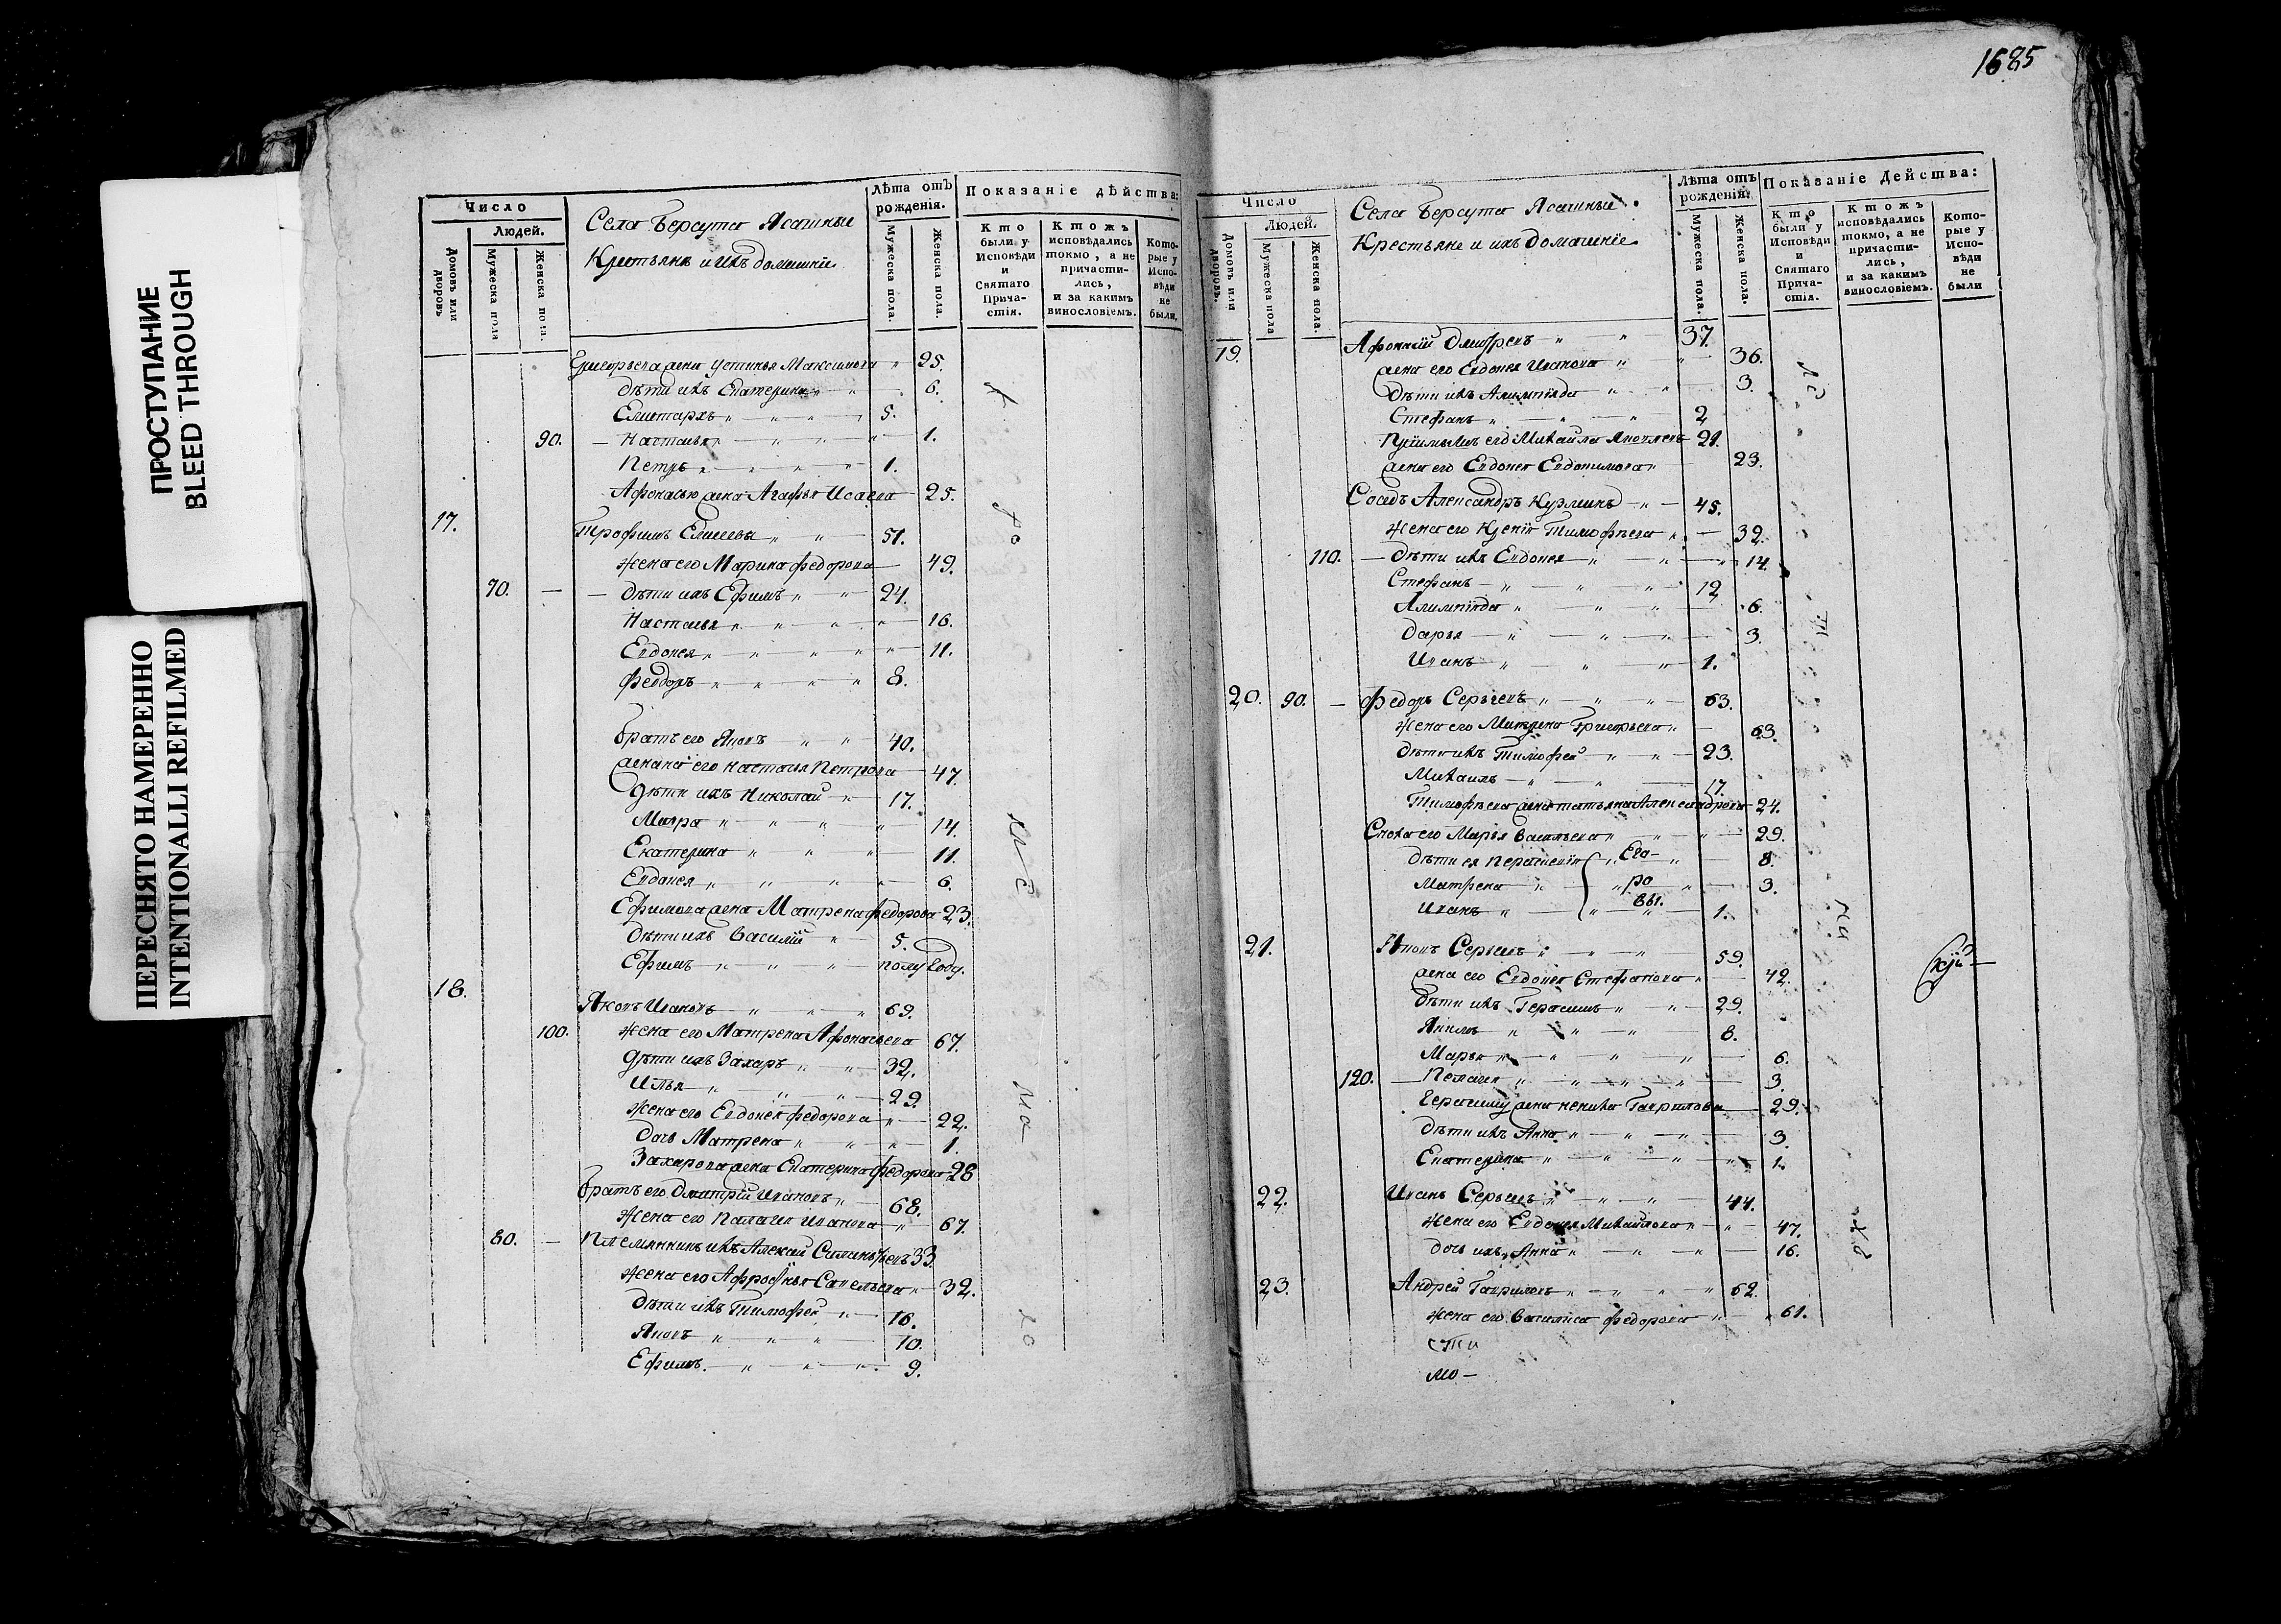 1685
ПРОСТУПАНИЕ
BLEED THROUGH
ПЕРЕСНЯТО НАМЕРЕННО
INTENTIONALLI REFILMED
Число
Людей.
Домовъ или дворовъ
Мужеска пола
Женска пола.
Села Берсута Ясашные
Крестьянѣ и ихъ домашнiе
Лѣта отъ рожденiя.
Мужеска пола.
Женска пола.
Показанiе дѣйства:
Кто были у Исповѣди и Святаго Прича-стiя.
Ктожъ исповѣдались токмо, а не причасти-лись, и за какимъ винословiемъ.
Кото-рые у Испо-вѣди не были,
Григорьева жена Устинья Максимова 25.
дѣти ихъ Екатерина 6.
Елистархъ 5.
90. Настасья 1.
Петръ 1.
Афонасью жена Агафья Исаева 25.
17. Трофимъ Елисеевъ 51.
жена его Марина Федорова 49.
70. дѣти ихъ Ефимъ 24.
Настасья 16.
Евдокея 11.
Феодоръ 8.
братъ его Яковъ 40.
жена его Настасья Петрова 47.
дѣти ихъ Николай 17.
Мавра 14.
Екатерина 11.
Евдокея 6.
Ефимова жена Матрена Федорова 23.
дѣти ихъ Василiй 5.
Ефимъ полугоду.
18. Яковъ Ивановъ 69.
100. жена его Матрена Афонасьева 67.
дѣти ихъ Захаръ 32.
Илья 29.
жена его Евдокея Федорова 22.
дочь Матрена 1.
Захарова жена Екатерина Федорова 28
братъ его Дмитрiй Ивановъ 68.
жена его Палагея Иванова 67.
80. Племянникъ ихъ Алексей 33
жена его Афросинья Савельева 32.
дѣти ихъ Тимофей 16.
Яковъ 10.
Ефимъ 9.
Число
Людей.
Домовъ или дворовъ.
Мужеска пола
Женска пола.
Села Берсута Ясашные
Крестьяне и ихъ домашнiе
Лѣта отъ рожденiя.
Мужеска пола.
Женска пола.
Показанiе Действа:
Кто были у Исповѣди и Святаго Прича-стiя.
Ктожъ исповѣдались токмо, а не причасти-лись, и за какимъ винословiемъ.
Кото-рые у Испо-вѣди не были
19. Афонасiй Дмитревъ 37.
жена его Евдокея Иванова 36.
Дѣти ихъ Алимпiяда 3.
Стефанъ 2
его Михаила Яковлевъ 21.
жена его Евдокея Евдокимова 23.
Соседъ Александръ Кузминъ 45.
жена его Ксенiя Тимофѣева 32.
110. дѣти ихъ Евдокея 14.
Стефанъ 12
Алимпiяда 6.
Дарья 3.
Иванъ 1.
20. 90. Федоръ Сергеевъ 63.
жена его Григорьева 63.
дѣти ихъ Тимофей 23.
Михаилъ 17.
Тимофѣева жена татьяна Александрова 24.
Сноха его Марья Васильева 29.
дѣти ея 8.
Матрена 3.
Иванъ 1.
Его-
ро
вы.
21. Яковъ Сергеевъ 59.
жена его Евдокея Стефанова 42.
дѣти ихъ Герасимъ 29.
Якимъ 8.
Марья 6.
120. Пелагея 3.
Герасиму жена Гаврилова 29.
дѣти ихъ Анна 3.
Екатерина 1.
22. Иванъ Сергеевъ 44.
жена его Евдокея Михайлова 47.
дочь ихъ Анна 16.
23. Андрей Гавриловъ 62.
жена его Василиса Федорова 61.